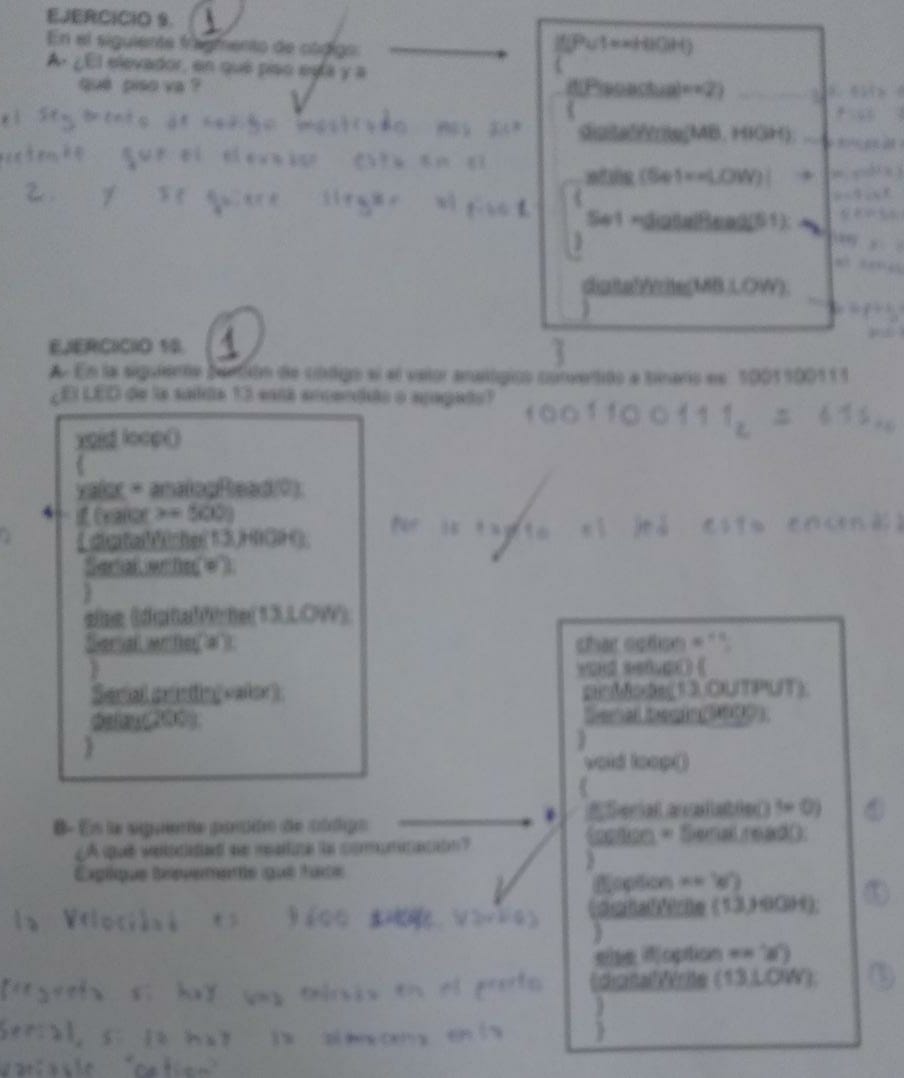 EJERCICIO 9. 1
En el siguiente fragmento de código:
A- ¿El elevador, en qué piso está y a
qué piso va ?
el segmento de codigo mostrado nos
que el elevador esta en el
2. y se quiere llegar al piso 1
if(Pu1==HIGH)
{
if(Pisoactual==2)
{
digitalWrite(MB, HIGH);
while (Se1==LOW)
{
Se1 =digitalRead(S1);
}
digitalWrite(MB,LOW);
}
}
EJERCICIO 10. 1
A- En la siguiente porción de código si el valor analógico convertido a binario es: 1001100111
¿El LED de la salida 13 está encendido o apagado?
1001100111₂ = 615₁₀
void loop()
{
valor = analogRead(0);
if (valor >= 500)
{ digitalWrite(13,HIGH);
Serial.write('e');
}
else {digitalWrite(13,LOW);
Serial.write('a');
}
Serial.println(valor);
delay(200);
}
Por lo tanto el led esta
B- En la siguiente porción de código:
¿A qué velocidad se realiza la comunicación?
Explique brevemente qué hace.
la velocidad es 9600
si hay una entrada en el puerto
Serial, si la hay la almacena en la
variable "option"
char option = ' ';
void setup() {
pinMode(13,OUTPUT);
Serial.begin(9600);
}
void loop()
{
if(Serial.available() != 0)
{option = Serial.read();
}
if(option == 'e')
{digitalWrite (13,HIGH);
}
else if(option == 'a')
{digitalWrite (13,LOW);
}
}